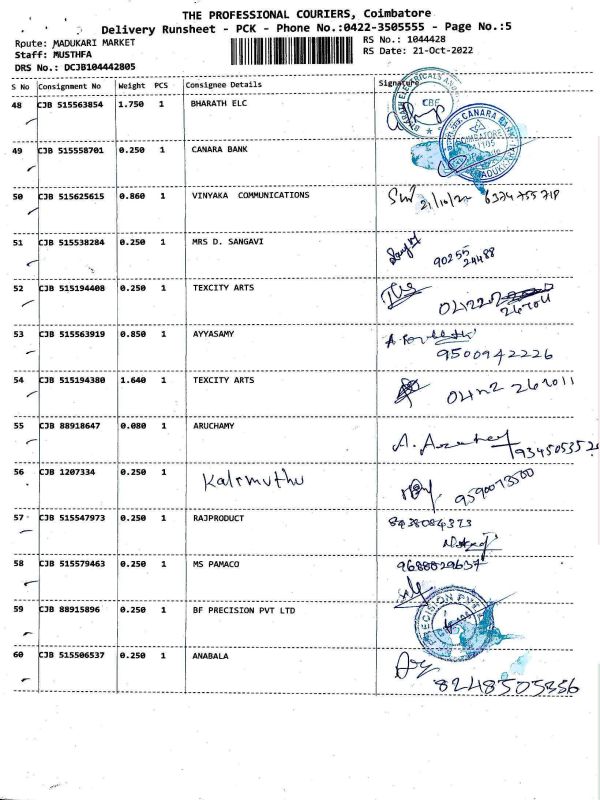 THE PROFESSIONAL COURIERS, Coimbatore
Delivery Runsheet - PCK - Phone No.:0422-3505555 - Page No.:5
Route: MADUKARI MARKET RS No.: 1044428
Staff: MUSTHFA RS Date: 21-Oct-2022
DRS No.: DCJB104442805
S No Consignment No Weight PCS Consignee Details Signature
48 CJB 515563854 1.750 1 BHARATH ELC
CBE
49 CJB 515558701 0.250 1 CANARA BANK
CANARA BANK
50 CJB 515625615 0.860 1 VINYAKA COMMUNICATIONS 21/10/22 6374755718
51 CJB 515538284 0.250 1 MRS D. SANGAVI
90255
24488
52 CJB 515194408 0.250 1 TEXCITY ARTS
267011
53 CJB 515563919 0.850 1 AYYASAMY
9500942226
54 CJB 515194380 1.640 1 TEXCITY ARTS 0422 267011
55 CJB 88918647 0.080 1 ARUCHAMY
56 CJB 1207334 0.250 1 Kalimuthu
57 CJB 515547973 0.250 1 RAJPRODUCT 8438084373
58 CJB 515579463 0.250 1 MS PAMACO 9688029637
59 CJB 88915896 0.250 1 BF PRECISION PVT LTD
PRECISION PVT
60 CJB 515506537 0.250 1 ANABALA
8248505356